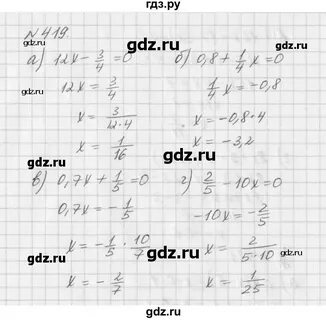 gdz.ru
№ 419.
а) 12x - 3/4 = 0
12x = 3/4
x = 3/(12·4)
x = 1/16
б) 0,8 + 1/4 x = 0
1/4 x = -0,8
x = -0,8·4
x = -3,2
в) 0,7x + 1/5 = 0
0,7x = -1/5
x = -1/5 · 10/7
x = -2/7
г) 2/5 - 10x = 0
-10x = -2/5
x = 2/(5·10)
x = 1/25
gdz.ru
gdz.ru
gdz.ru
gdz.ru
gdz.ru
gdz.ru
gdz.ru
gdz.ru
gdz.ru